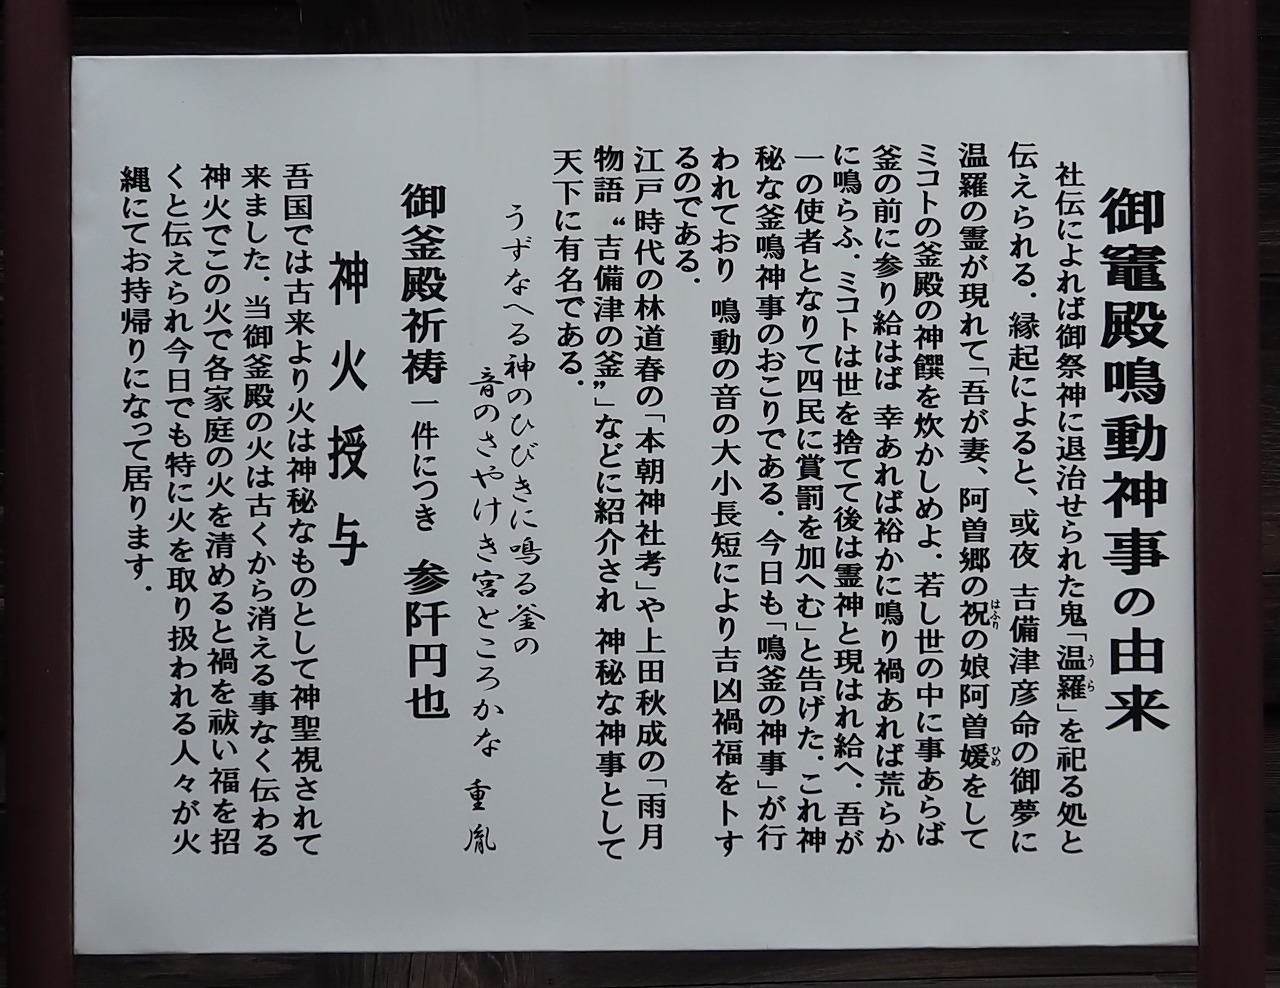 御竈殿鳴動神事の由来
社伝によれば御祭神に退治せられた鬼「温羅」を祀る処と
うら
伝えられる．縁起によると、或夜 吉備津彦命の御夢に
温羅の霊が現れて「吾が妻、阿曽郷の祝の娘阿曽媛をして
はふり
ひめ
ミコトの釜殿の神饌を炊かしめよ．若し世の中に事あらば
釜の前に参り給はば 幸あれば裕かに鳴り禍あれば荒らか
に鳴らふ．ミコトは世を捨てて後は霊神と現はれ給へ．吾が
一の使者となりて四民に賞罰を加へむ」と告げた．これ神
秘な釜鳴神事のおこりである．今日も「鳴釜の神事」が行
われており 鳴動の音の大小長短により吉凶禍福を卜す
るのである．
江戸時代の林道春の「本朝神社考」や上田秋成の「雨月
物語“吉備津の釜”」などに紹介され 神秘な神事として
天下に有名である．
うずなへる神のひびきに鳴る釜の
音のさやけき宮どころかな 重胤
御釜殿祈祷一件につき 参阡円也
神火授与
吾国では古来より火は神秘なものとして神聖視されて
来ました．当御釜殿の火は古くから消える事なく伝わる
神火でこの火で各家庭の火を清めると禍を祓い福を招
くと伝えられ今日でも特に火を取り扱われる人々が火
縄にてお持帰りになって居ります．